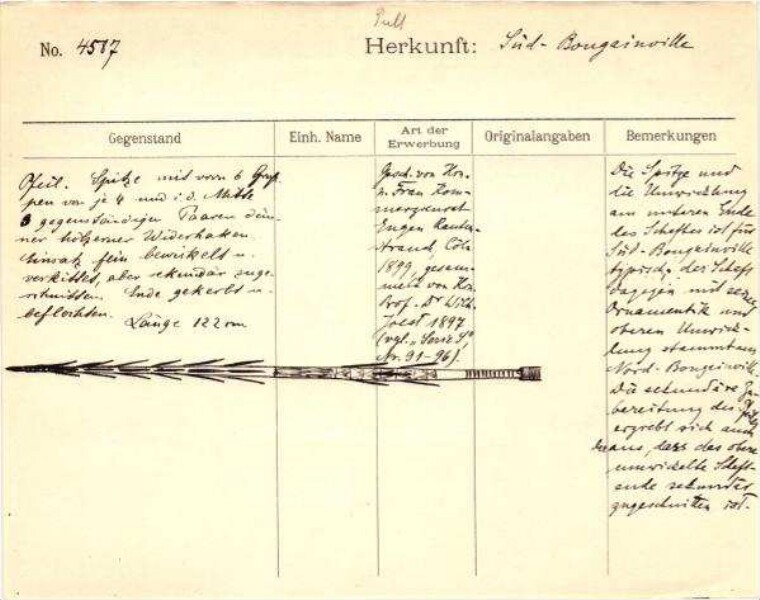 No. 4587
Herkunft: Süd-Bougainville
Gegenstand
Einh. Name
Art der
Erwerbung
Originalangaben
Bemerkungen
Pfeil. Spitze mit vorn 6 Grup-
pen von je 4 und i. d. Mitte
3 gegenständigen Paaren dün-
ner hölzerner Widerhaken.
Einsatz fein bewickelt u.
verkittet, aber sekundär zuge-
schnitten. Ende gekerbt u.
beflochten.
Länge 122 cm
Gesch. von Hrn.
u. Frau Kom-
merzienrat
Eugen Rauten-
strauch, Cöln
1899, gesam-
melt von Hrn.
Prof. Dr. Wilh.
Joest 1897
(vgl. "Serie S",
Nr. 91-96).
Die Spitze und
die Umwicklung
am unteren Ende
des Schaftes ist für
Süd-Bougainville
typisch, der Schaft
dagegen mit seiner
Ornamentik und
oberen Umwick-
lung stammt aus
Nord-Bougainville.
Die sekundäre Zu-
bereitung des
ergibt sich auch
daraus, dass das obere
umwickelte Schaft-
ende sekundär
zugeschnitten ist.